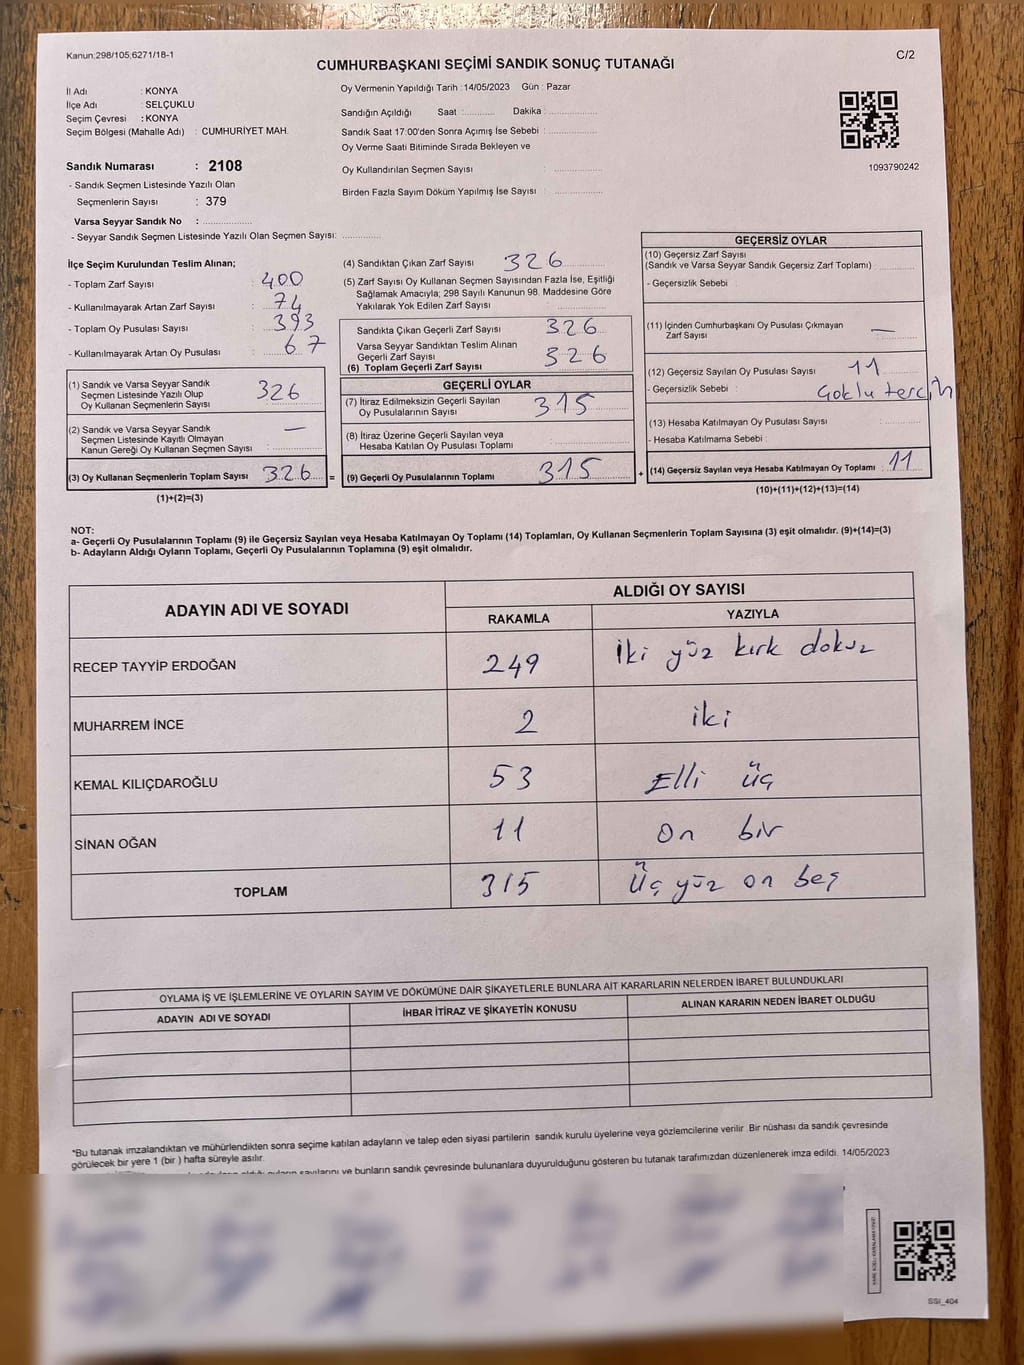 Kanun:298/105;6271/18-1
C/2
CUMHURBAŞKANI SEÇİMİ SANDIK SONUÇ TUTANAĞI
İl Adı : KONYA
İlçe Adı : SELÇUKLU
Seçim Çevresi : KONYA
Seçim Bölgesi (Mahalle Adı) : CUMHURİYET MAH.
Sandık Numarası : 2108
- Sandık Seçmen Listesinde Yazılı Olan
Seçmenlerin Sayısı : 379
Varsa Seyyar Sandık No :
- Seyyar Sandık Seçmen Listesinde Yazılı Olan Seçmen Sayısı:
Oy Vermenin Yapıldığı Tarih :14/05/2023 Gün : Pazar
Sandığın Açıldığı Saat : Dakika :
Sandık Saat 17:00'den Sonra Açımış İse Sebebi :
Oy Verme Saati Bitiminde Sırada Bekleyen ve
Oy Kullandırılan Seçmen Sayısı :
Birden Fazla Sayım Döküm Yapılmış İse Sayısı :
1093790242
İlçe Seçim Kurulundan Teslim Alınan;
- Toplam Zarf Sayısı : 400
- Kullanılmayarak Artan Zarf Sayısı : 74
- Toplam Oy Pusulası Sayısı : 393
- Kullanılmayarak Artan Oy Pusulası : 67
(1) Sandık ve Varsa Seyyar Sandık
Seçmen Listesinde Yazılı Olup
Oy Kullanan Seçmenlerin Sayısı 326
(2) Sandık ve Varsa Seyyar Sandık
Seçmen Listesinde Kayıtlı Olmayan
Kanun Gereği Oy Kullanan Seçmen Sayısı : —
(3) Oy Kullanan Seçmenlerin Toplam Sayısı 326 =
(1)+(2)=(3)
(4) Sandıktan Çıkan Zarf Sayısı 326
(5) Zarf Sayısı Oy Kullanan Seçmen Sayısından Fazla İse, Eşitliği
Sağlamak Amacıyla; 298 Sayılı Kanunun 98. Maddesine Göre
Yakılarak Yok Edilen Zarf Sayısı :
Sandıkta Çıkan Geçerli Zarf Sayısı 326
Varsa Seyyar Sandıktan Teslim Alınan
Geçerli Zarf Sayısı
(6) Toplam Geçerli Zarf Sayısı 326
GEÇERLİ OYLAR
(7) İtiraz Edilmeksizin Geçerli Sayılan
Oy Pusulalarının Sayısı 315
(8) İtiraz Üzerine Geçerli Sayılan veya
Hesaba Katılan Oy Pusulası Toplamı
(9) Geçerli Oy Pusulalarının Toplamı 315 +
GEÇERSİZ OYLAR
(10) Geçersiz Zarf Sayısı
(Sandık ve Varsa Seyyar Sandık Geçersiz Zarf Toplamı) :
- Geçersizlik Sebebi :
(11) İçinden Cumhurbaşkanı Oy Pusulası Çıkmayan
Zarf Sayısı —
(12) Geçersiz Sayılan Oy Pusulası Sayısı : 11
- Geçersizlik Sebebi : Çoklu tercih
(13) Hesaba Katılmayan Oy Pusulası Sayısı :
- Hesaba Katılmama Sebebi :
(14) Geçersiz Sayılan veya Hesaba Katılmayan Oy Toplamı : 11
(10)+(11)+(12)+(13)=(14)
NOT:
a- Geçerli Oy Pusulalarının Toplamı (9) ile Geçersiz Sayılan veya Hesaba Katılmayan Oy Toplamı (14) Toplamları, Oy Kullanan Seçmenlerin Toplam Sayısına (3) eşit olmalıdır. (9)+(14)=(3)
b- Adayların Aldığı Oyların Toplamı, Geçerli Oy Pusulalarının Toplamına (9) eşit olmalıdır.
ADAYIN ADI VE SOYADI ALDIĞI OY SAYISI
RAKAMLA YAZIYLA
RECEP TAYYİP ERDOĞAN 249 iki yüz kırk dokuz
MUHARREM İNCE 2 iki
KEMAL KILIÇDAROĞLU 53 Elli üç
SİNAN OĞAN 11 on bir
TOPLAM 315 Üç yüz on beş
OYLAMA İŞ VE İŞLEMLERİNE VE OYLARIN SAYIM VE DÖKÜMÜNE DAİR ŞİKAYETLERLE BUNLARA AİT KARARLARIN NELERDEN İBARET BULUNDUKLARI
ADAYIN ADI VE SOYADI İHBAR İTİRAZ VE ŞİKAYETİN KONUSU ALINAN KARARIN NEDEN İBARET OLDUĞU
*Bu tutanak imzalandıktan ve mühürlendikten sonra seçime katılan adayların ve talep eden siyasi partilerin sandık kurulu üyelerine veya gözlemcilerine verilir. Bir nüshası da sandık çevresinde
görülecek bir yere 1 (bir ) hafta süreyle asılır.
ve bunların sandık çevresinde bulunanlara duyurulduğunu gösteren bu tutanak tarafımızdan düzenlenerek imza edildi. 14/05/2023
SSİ_404